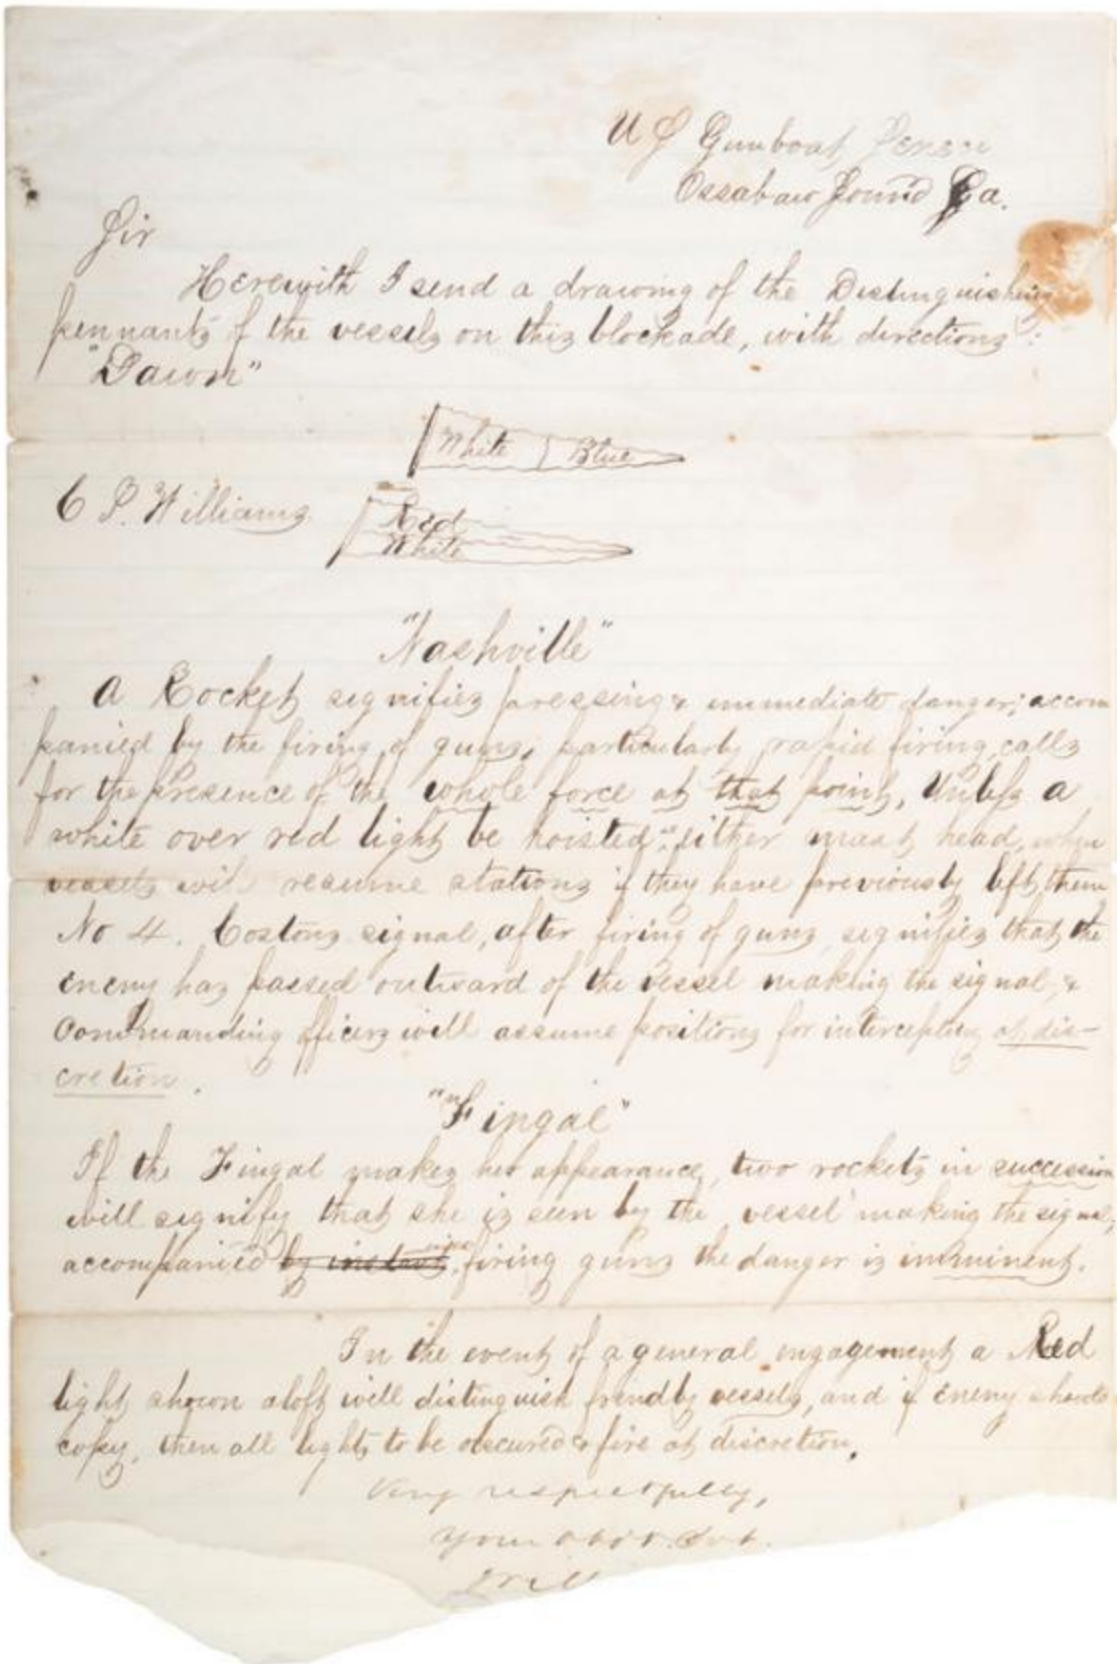 U S Gunboat Seneca
Ossabaw Sound Ga.
Sir
Herewith I send a drawing of the Distinguishing
pennants of the vessels on this blockade, with directions:
"Dawn"
White Blue
C P. Williams
Red
White
"Nashville"
A Rocket signifies pressing & immediate danger; accom
panied by the firing of guns, particularly rapid firing, calls
for the presence of the whole force at that point, Unless a
white over red light be hoisted at either mast head, when
vessels will resume stations if they have previously left them
No 4. Costons signal, after firing of guns, signifies that the
enemy has passed outward of the vessel making the signal, &
Commanding officers will assume positions for intercepting at dis-
cretion.
"Fingal"
If the Fingal makes her appearance, two rockets in succession
will signify that she is seen by the vessel making the signal,
accompanied by firing guns the danger is imminent.
In the event of a general engagement a Red
light shown aloft will distinguish friendly vessels, and if enemy should
copy, then all lights to be obscured & fire at discretion.
Very respectfully,
Your obdt. Svt.